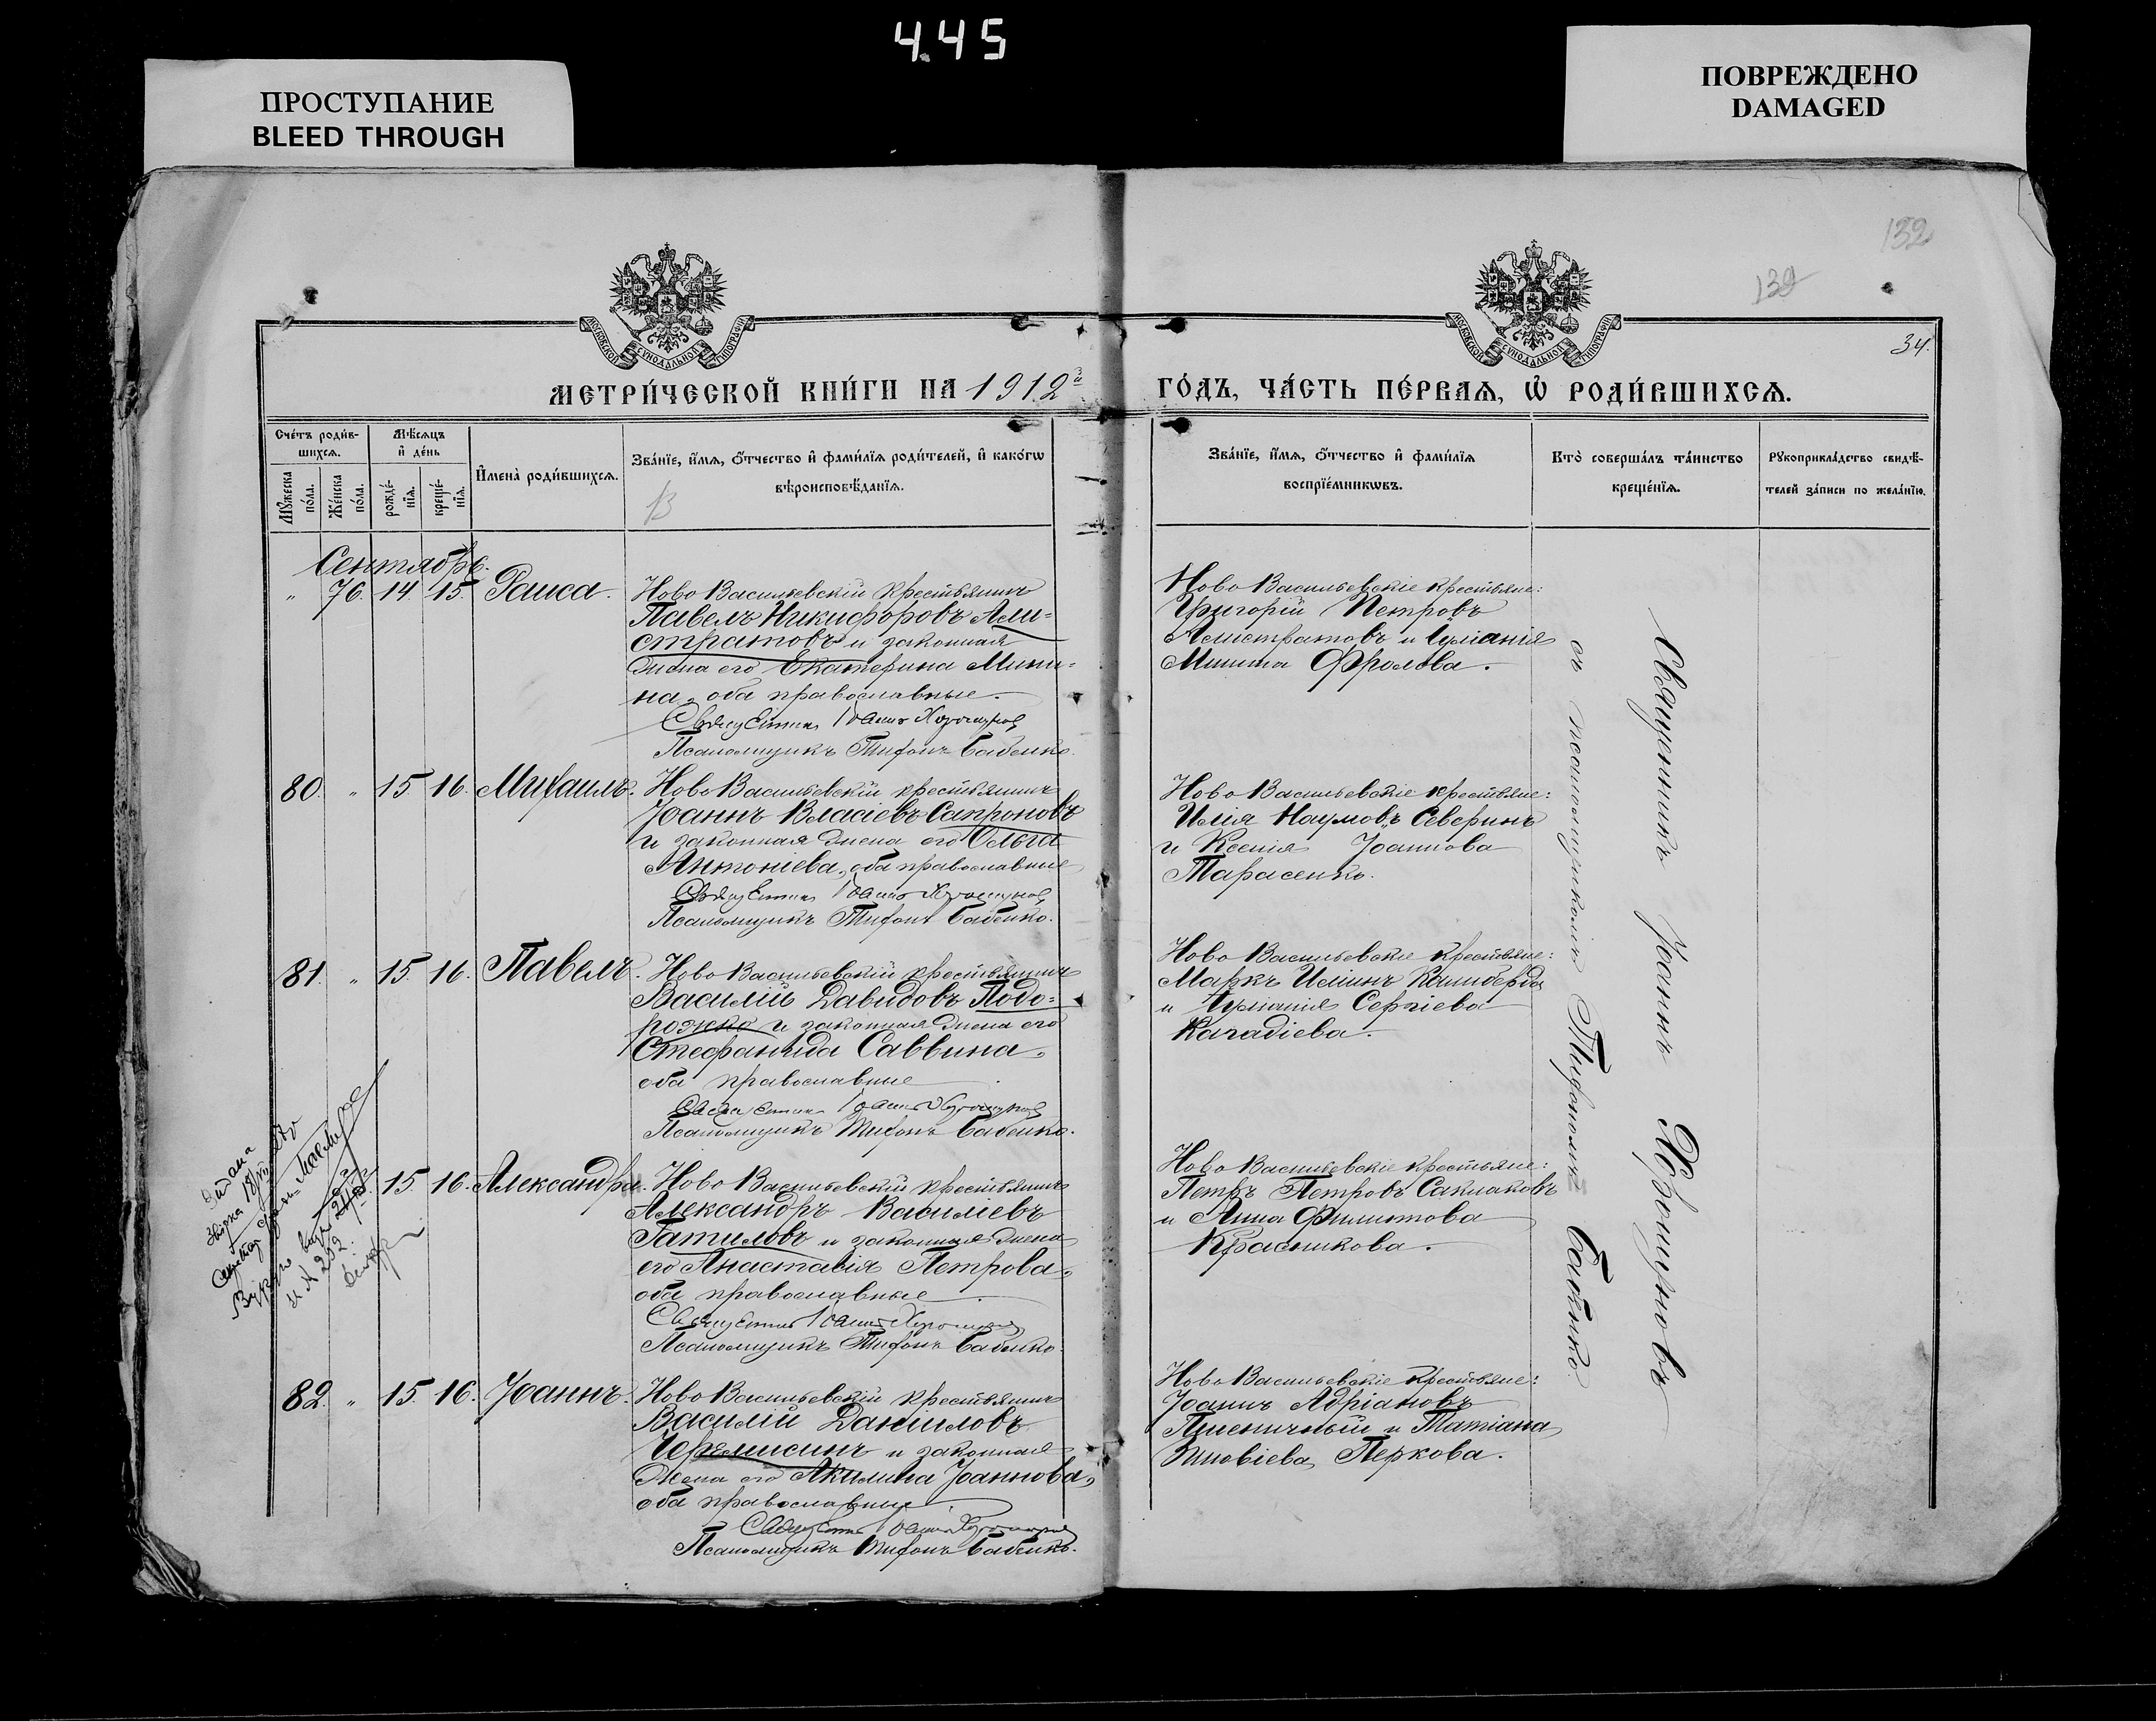 4.45
ПРОСТУПАНИЕ
BLEED THROUGH
ПОВРЕЖДЕНО
DAMAGED
132
132
34.
МОСКОВСКОЙ СУНОДАЛЬНОЙ ТИПОГРАФІИ
МОСКОВСКОЙ СУНОДАЛЬНОЙ ТИПОГРАФІИ
МЕТРИ́ЧЕСКОЙ КНИ́ГИ НА 1912й ГО́ДЪ, ЧА́СТЬ ПЕ́РВАѦ, Ѡ РОДИ́ВШИХСѦ.
Сче́тъ роди́в-
шихсѧ.
Мꙋжеска по́ла.
Же́нска по́ла.
Мѣ́сѧцъ
и҆ де́нь
рожде́-
нїѧ.
креще́-
нїѧ.
И҆мена̀ роди́вшихсѧ.
Зва́нїе, и҆́мѧ, ѻ҆́тчество и҆ фами́лїѧ роди́телей, и҆ како́гѡ
вѣроисповѣ́данїѧ.
Зва́нїе, и҆́мѧ, ѻ҆́тчество и҆ фами́лїѧ
воспрїе́мникѡвъ.
Кто̀ соверша́лъ та́инство
креще́нїѧ.
Рꙋкоприкла́дство свидѣ́-
телей за́писи по жела́нїю.
В
Сентябрь.
" 76. 14. 15. Раиса. Ново Васильевскій крестьянинъ
Павелъ Никифоровъ Али-
стратовъ и законная
жена его Екатерина Мини-
на, оба православные.
Священникъ Іоаннъ Хорошуновъ
Псаломщикъ Тихонъ Бабенко.
Ново Васильевскіе крестьяне:
Григорій Петровъ
Алистратовъ и Іуліанія
Минина Фролова.
80. " 15. 16. Михаилъ. Ново Васильевскій крестьянинъ
Іоаннъ Власіевъ Сапроновъ
и законная жена его Ольга
Антоніева, оба православные
Священникъ Іоаннъ Хорошуновъ
Псаломщикъ Тихонъ Бабенко.
Ново Васильевскіе крестьяне:
Илія Наумовъ Северинъ
и Ксенія Іоаннова
Тарасенко.
81. " 15. 16. Павелъ. Ново Васильевскій крестьянинъ
Василій Давидовъ Подо-
рожко и законная жена его
Стефанида Саввина,
оба православные
Священникъ Іоаннъ Хорошуновъ
Псаломщикъ Тихонъ Бабенко.
Ново Васильевскіе крестьяне:
Маркъ Иліинъ Калиберда
и Іуліанія Сергіева
Карадіева.
15. 16. Александра. Ново Васильевскій крестьянинъ
Александръ Васильевъ
Гатиловъ и законная жена
его Анастасія Петрова,
оба православные
Священникъ Іоаннъ Хорошуновъ
Псаломщикъ Тихонъ Бабенко.
Ново Васильевскіе крестьяне:
Петръ Петровъ Саклаковъ
и Анна Филиппова
Красникова.
82. " 15. 16. Іоаннъ. Ново Васильевскій крестьянинъ
Василій Даниловъ
Черемисинъ и законная
жена его Акилина Іоаннова,
оба православные
Священникъ Іоаннъ Хорошуновъ
Псаломщикъ Тихонъ Бабенко.
Ново Васильевскіе крестьяне:
Іоаннъ Адріановъ
Пшеничный и Татіана
Зиновіева Перкова.
Священникъ Іоаннъ Хорошуновъ
съ псаломщикомъ Тихономъ Бабенко.